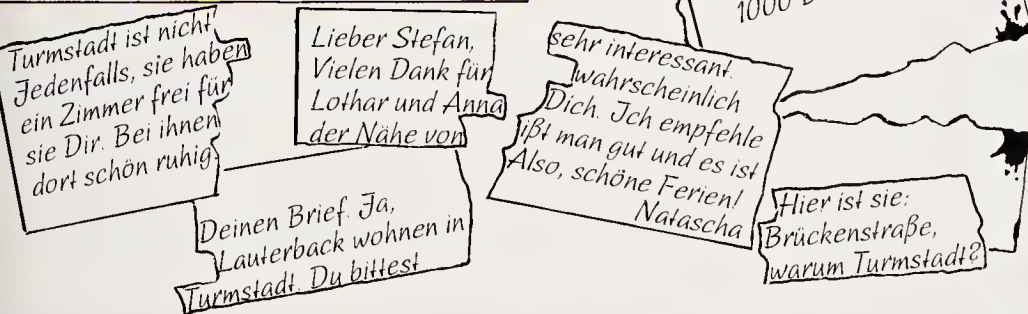 1000
Turmstadt ist nicht
Jedenfalls, sie haben
ein Zimmer frei für
sie Dir. Bei ihnen
dort schön ruhig.
Lieber Stefan,
Vielen Dank für
Lothar und Anna
der Nähe von
Deinen Brief. Ja,
Lauterback wohnen in
Turmstadt. Du bittest
sehr interessant.
wahrscheinlich
Dich. Ich empfehle
ißt man gut und es ist
Also, schöne Ferien!
Natascha
Hier ist sie:
Brückenstraße,
warum Turmstadt?